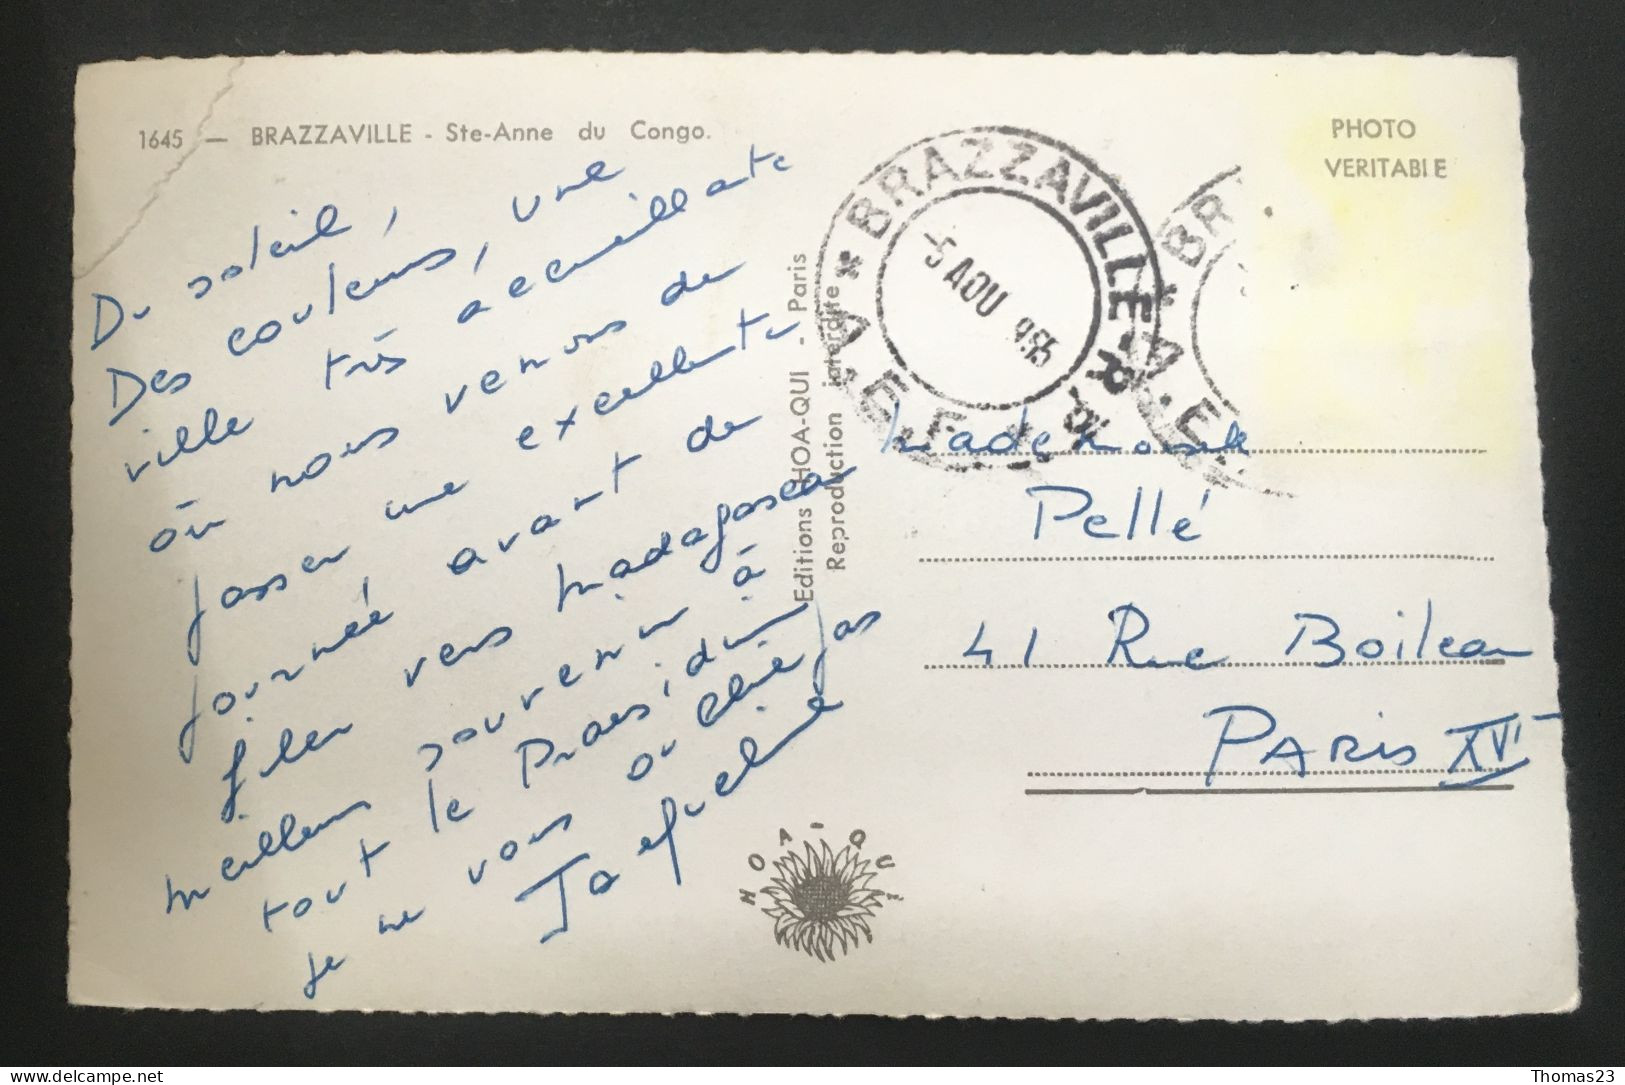 1645 — BRAZZAVILLE - Ste-Anne du Congo.
Du soleil,
Des couleurs, une
ville très accueillante
où nous venons de
passer une excellente
journée avant de
filer vers Madagascar
meilleurs souvenirs à
tout le Praesidium
je ne vous oublie pas
Jaqueline
Editions HOA-QUI - Paris
Reproduction interdite
BRAZZAVILLE-R.P.
A.E.F.
-5 AOU 1955
BR
A.E.
PHOTO
VERITABLE
Mademoiselle
Pellé
41 Rue Boileau
PARIS XVI
HOA-QUI
Thomas23